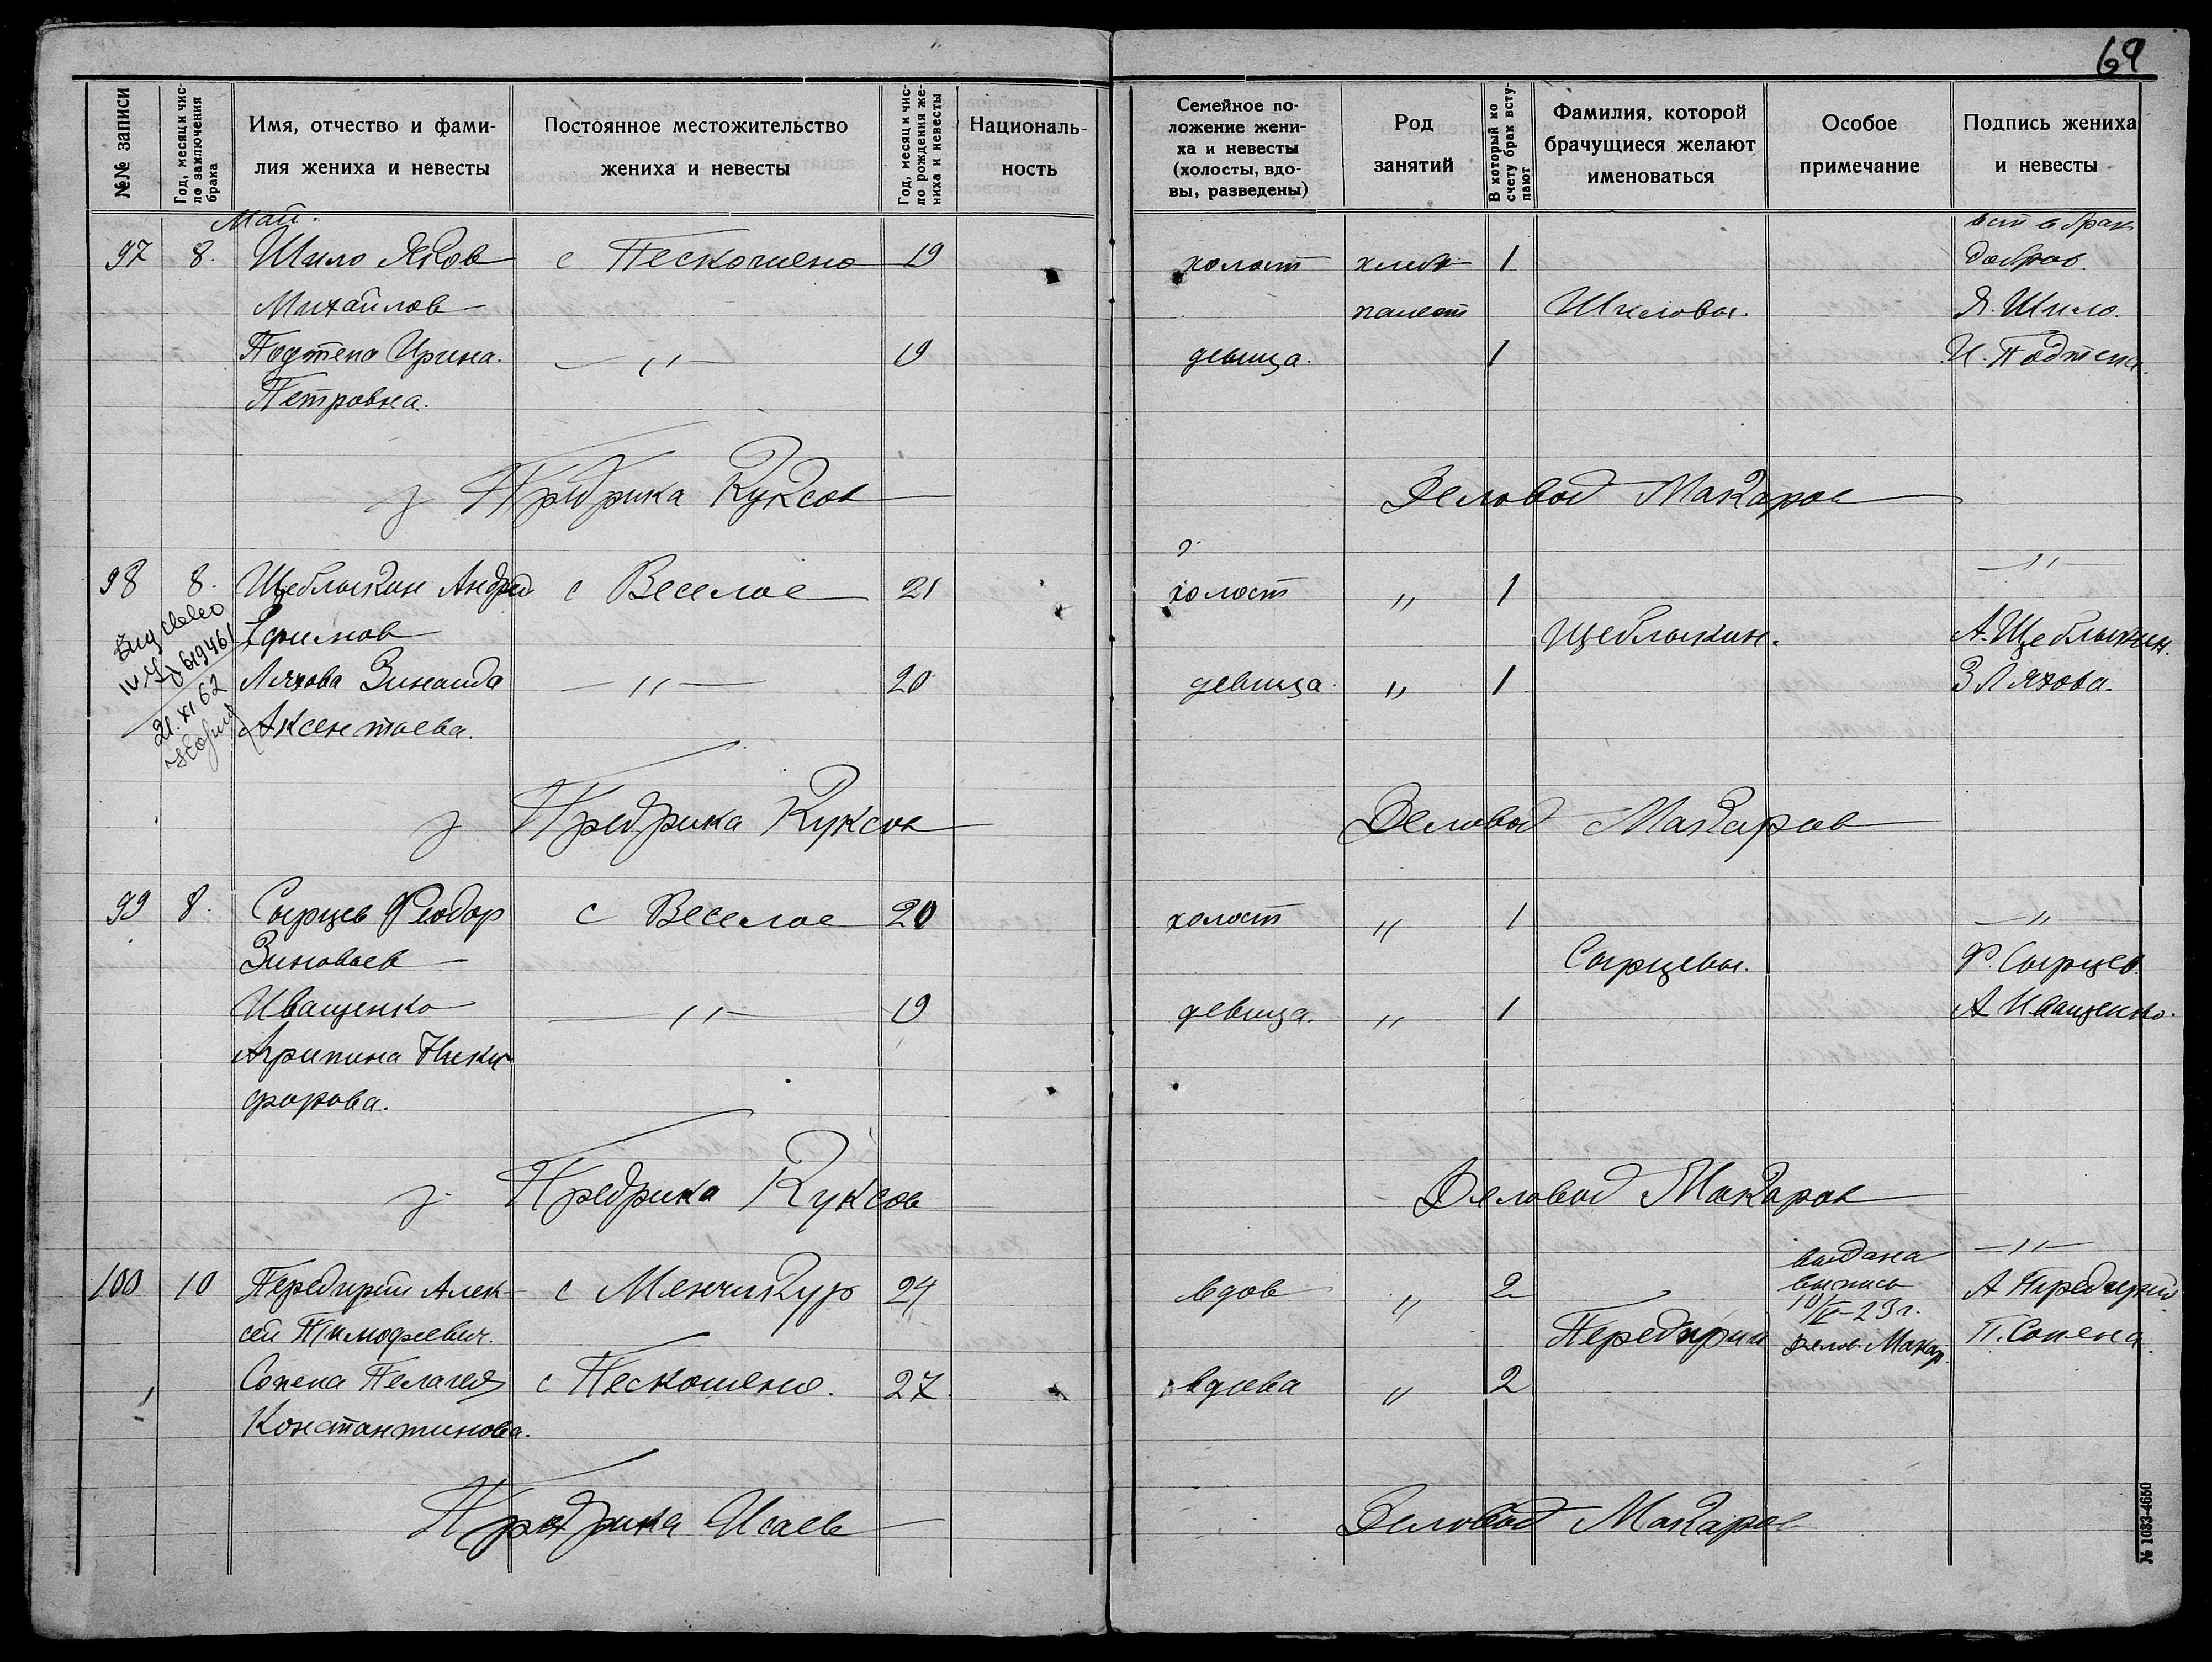 69
№№ записи
Год, месяц и чис-
ло заключения
брака
Имя, отчество и фами-
лия жениха и невесты
Постоянное местожительство
жениха и невесты
Год, месяц и чис-
ло рождения же-
ниха и невесты
Националь-
ность
Семейное по-
ложение жени-
ха и невесты
(холосты, вдо-
вы, разведены)
Род
занятий
В который ко
счету брак всту-
пают
Фамилия, которой
брачущиеся желают
именоваться
Особое
примечание
Подпись жениха
и невесты
Май.
97 8. Шило Яков с Пескошено 19 холост хлеб 1
вст в брак
добров.
Михайлов пашест Шиловы. Я. Шило.
Подтепа Ирина. — " — 19 девица. 1 И. Подтепа.
Петровна.
з Предрика Куксов Деловод Макаров
98 8. Щеблыкин Андрей с Веселое 21 холост " 1 — " —
Ефимов Щеблыкин. А. Щеблыкин.
Ляхова Зинаида — " — 20 девица " 1 З Ляхова.
Аксентьева.
619461
21. XI 62
з Предрика Куксов Деловод Макаров
99 8. Сырцев Феодор с Веселое 20 холост " 1 — " —
Зиновьев Сырцевы. Ф. Сырцев.
Иващенко — " — 19 девица. " 1 А Иващенко.
Агрипина Ники-
форова.
з. Предрика Куксов Деловод Макаров
100 10 Передирий Алек- с Менчикур 24 вдов " 2 — " —
выдана
выпись
10/V-23 г.
Делов. Макар.
А Передирий
сей Тимофеевич. Передирии П. Сопена
Сопена Пелагея с Пескошено. 27 вдова " 2
Константинова.
Предрика Исаев Деловод Макаров
№ 1083-4650